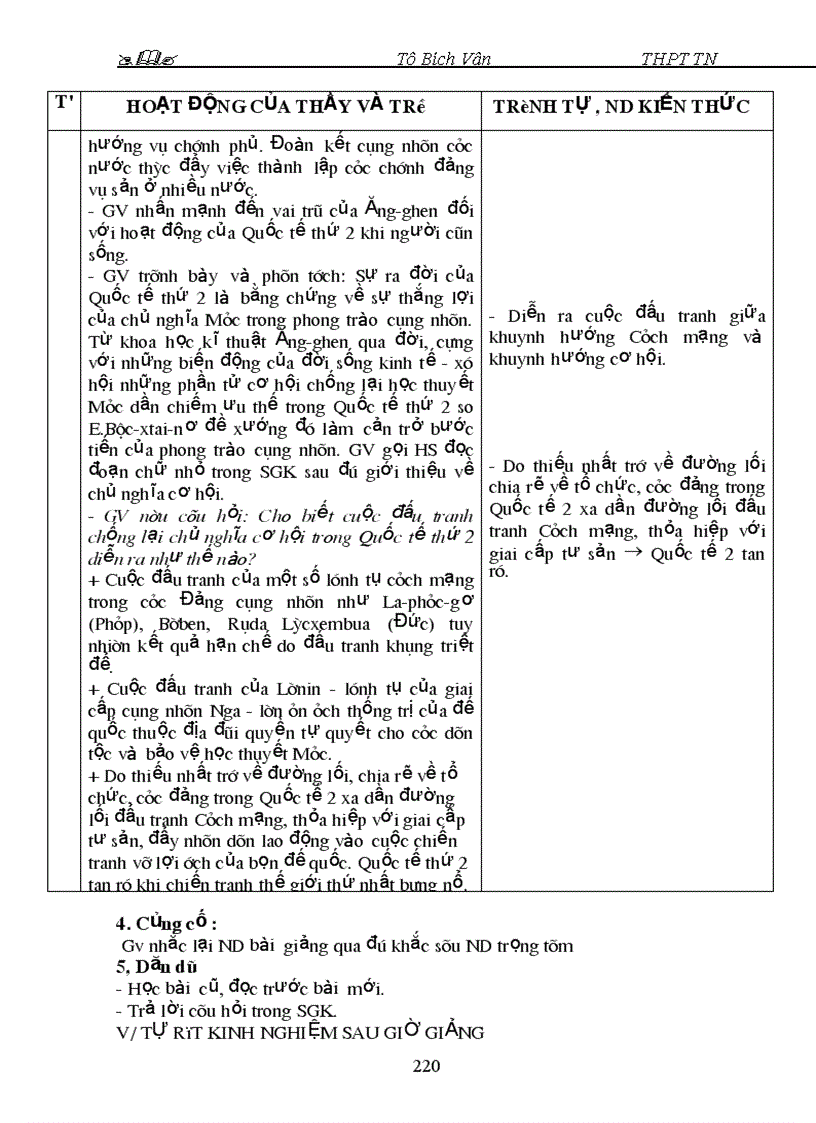 Tô Bích Vân THPT TN
T' HOẠT ĐỘNG CỦA THẦY VÀ TRề TRèNH TỰ , ND KIẾN THỨC
hướng vụ chớnh phủ. Đoàn kết cụng nhõn cỏc
nước thỳc đẩy việc thành lập cỏc chớnh đảng
vụ sản ở nhiều nước.
- GV nhấn mạnh đến vai trũ của Ăng-ghen đối
với hoạt động của Quốc tế thứ 2 khi người cũn
sống.
- GV trỡnh bày và phõn tớch: Sự ra đời của
Quốc tế thứ 2 là bằng chứng về sự thắng lợi
của chủ nghĩa Mỏc trong phong trào cụng nhõn.
Từ khoa học kĩ thuật Ăng-ghen qua đời, cựng
với những biến động của đời sống kinh tế - xó
hội những phần tử cơ hội chống lại học thuyết
Mỏc dần chiếm ưu thế trong Quốc tế thứ 2 so
E.Bộc-xtai-nơ đề xướng đó làm cản trở bước
tiến của phong trào cụng nhõn. GV gọi HS đọc
đoạn chữ nhỏ trong SGK sau đú giới thiệu về
chủ nghĩa cơ hội.
- GV nờu cõu hỏi: Cho biết cuộc đấu tranh
chống lại chủ nghĩa cơ hội trong Quốc tế thứ 2
diễn ra như thế nào?
+ Cuộc đấu tranh của một số lónh tụ cỏch mạng
trong cỏc Đảng cụng nhõn như La-phỏc-gơ
(Phỏp), Bờben, Rụda Lỳcxembua (Đức) tuy
nhiờn kết quả hạn chế do đấu tranh khụng triệt
để.
+ Cuộc đấu tranh của Lờnin - lónh tụ của giai
cấp cụng nhõn Nga - lờn ỏn ỏch thống trị của đế
quốc thuộc địa đũi quyền tự quyết cho cỏc dõn
tộc và bảo vệ học thuyết Mỏc.
+ Do thiếu nhất trớ về đường lối, chia rẽ về tổ
chức, cỏc đảng trong Quốc tế 2 xa dần đường
lối đấu tranh Cỏch mạng, thỏa hiệp với giai cấp
tư sản, đẩy nhõn dõn lao động vào cuộc chiến
tranh vỡ lợi ớch của bọn đế quốc. Quốc tế thứ 2
tan ró khi chiến tranh thế giới thứ nhất bựng nổ.
- Diễn ra cuộc đấu tranh giữa
khuynh hướng Cỏch mạng và
khuynh hướng cơ hội.
- Do thiếu nhất trớ về đường lối
chia rẽ về tổ chức, cỏc đảng trong
Quốc tế 2 xa dần đường lối đấu
tranh Cỏch mạng, thỏa hiệp với
giai cấp tư sản → Quốc tế 2 tan
ró.
4. Củng cố :
Gv nhắc lại ND bài giảng qua đú khắc sõu ND trọng tõm
5, Dăn dũ
- Học bài cũ, đọc trước bài mới.
- Trả lời cõu hỏi trong SGK.
V/ TỰ RỳT KINH NGHIỆM SAU GIỜ GIẢNG
220